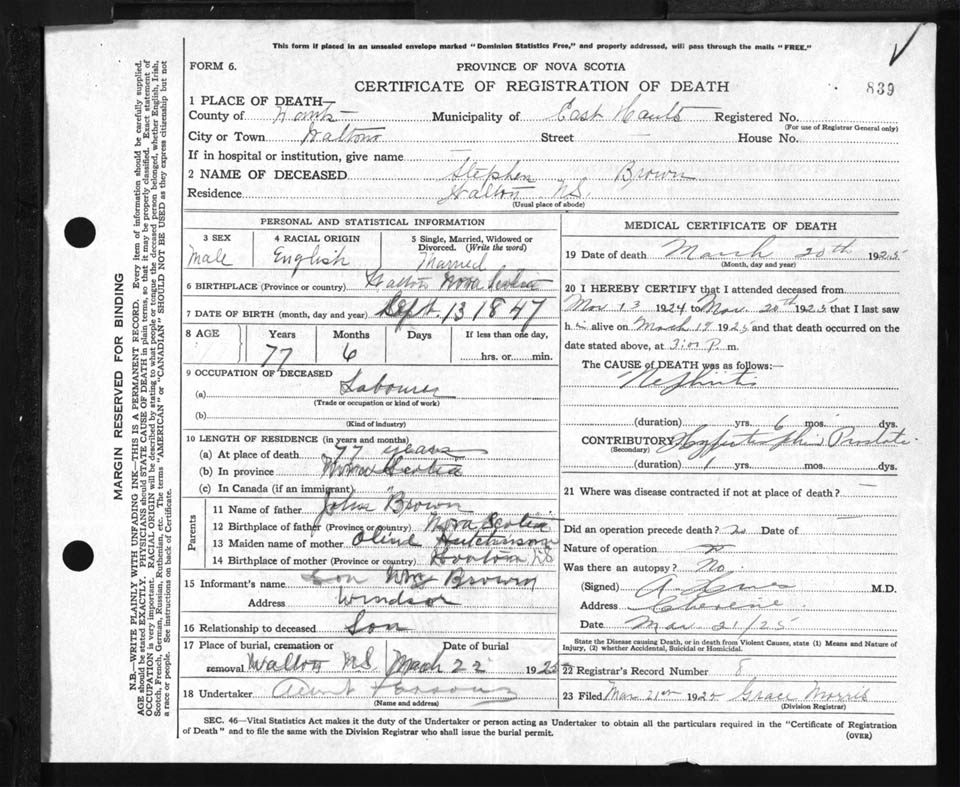 This form if placed in an unsealed envelope marked "Dominion Statistics Free," and properly addressed, will pass through the mails "FREE."
FORM 6.
PROVINCE OF NOVA SCOTIA
CERTIFICATE OF REGISTRATION OF DEATH
839
1 PLACE OF DEATH
County of Hants Municipality of East Hants Registered No.
(For use of Registrar General only)
City or Town Walton Street — House No.
If in hospital or institution, give name —
2 NAME OF DECEASED Stephen Brown
Residence Walton N.S.
(Usual place of abode)
PERSONAL AND STATISTICAL INFORMATION
3 SEX Male
4 RACIAL ORIGIN English
5 Single, Married, Widowed or Divorced. (Write the word) Married
6 BIRTHPLACE (Province or country) Walton Nova Scotia
7 DATE OF BIRTH (month, day and year) Sept. 13 1847
8 AGE Years 77 Months 6 Days If less than one day, hrs. or min.
9 OCCUPATION OF DECEASED
(a) Labourer
(Trade or occupation or kind of work)
(b)
(Kind of industry)
10 LENGTH OF RESIDENCE (in years and months)
(a) At place of death 77 years
(b) In province Nova Scotia
(c) In Canada (if an immigrant)
Parents
11 Name of father John Brown
12 Birthplace of father (Province or country) Nova Scotia
13 Maiden name of mother Olive Hutchinson
14 Birthplace of mother (Province or country) NS
15 Informant's name Son Wm Brown
Address Windsor
16 Relationship to deceased Son
17 Place of burial, cremation or removal Walton NS Date of burial March 22 1925
18 Undertaker
(Name and address)
MEDICAL CERTIFICATE OF DEATH
19 Date of death March 20th 1925
(Month, day and year)
20 I HEREBY CERTIFY that I attended deceased from
Mar 13 1924 to Mar. 20th 1925 that I last saw
h im alive on March 19 1925 and that death occurred on the
date stated above, at 3:00 P. m.
The CAUSE of DEATH was as follows:
Nephritis
(duration) yrs. 6 mos. dys.
CONTRIBUTORY Prostate
(Secondary)
(duration) 1 yrs. mos. dys.
21 Where was disease contracted if not at place of death? —
Did an operation precede death? no Date of —
Nature of operation
Was there an autopsy? No.
(Signed) M.D.
Address
Date Mar 21/25
State the Disease causing Death, or in death from Violent Causes, state (1) Means and Nature of Injury, (2) whether Accidental, Suicidal or Homicidal.
22 Registrar's Record Number
23 Filed Mar 21st 1925 Grace Morris
(Division Registrar)
SEC. 46—Vital Statistics Act makes it the duty of the Undertaker or person acting as Undertaker to obtain all the particulars required in the "Certificate of Registration
of Death" and to file the same with the Division Registrar who shall issue the burial permit.
(OVER)
MARGIN RESERVED FOR BINDING
N.B.—WRITE PLAINLY WITH UNFADING INK—THIS IS A PERMANENT RECORD. Every item of information should be carefully supplied.
AGE should be stated EXACTLY. PHYSICIANS should STATE CAUSE OF DEATH in plain terms, so that it may be properly classified. Exact statement of
OCCUPATION is very important. RACIAL ORIGIN will be described by stating to what people or tongue the deceased person belonged, whether English, Irish,
Scotch, French, German, Russian, Ruthenian, etc. The terms "AMERICAN" or "CANADIAN" SHOULD NOT BE USED as they express citizenship but not
a race or people. See instructions on back of Certificate.